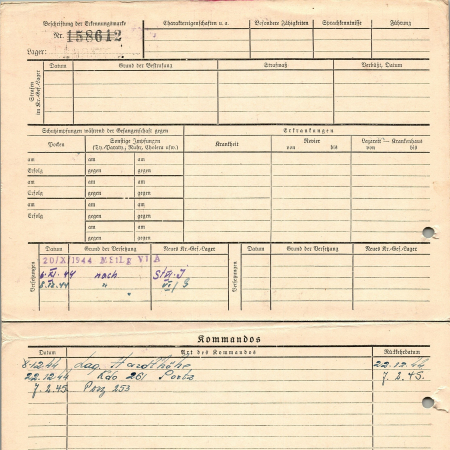 Beschriftung der Erkennungsmarke
Nr. 158612
Lager:
Charaktereigenschaften u. a.
Besondere Fähigkeiten
Sprachkenntnisse
Führung
Strafen im Kr.-Gef.-Lager
Datum
Grund der Bestrafung
Strafmaß
Verbüßt, Datum
Schutzimpfungen während der Gefangenschaft gegen
Erkrankungen
Pocken
Sonstige Impfungen
(Ty.-Paraty., Ruhr, Cholera usw.)
Krankheit
Revier
von bis
Lazarett — Krankenhaus
von bis
am am am
Erfolg gegen gegen
am am am
Erfolg gegen gegen
am am am
Erfolg gegen gegen
am am
gegen gegen
Versetzungen
Datum Grund der Versetzung Neues Kr.-Gef.-Lager
Versetzungen
Datum Grund der Versetzung Neues Kr.-Gef.-Lager
20/X 1944 VI A
44 nach
44 "
Kommandos
Datum Art des Kommandos Rückkehrdatum
8.12.44 22.12.44
22.12.44 Kdo 261 7.2.45.
7.2.45. 253